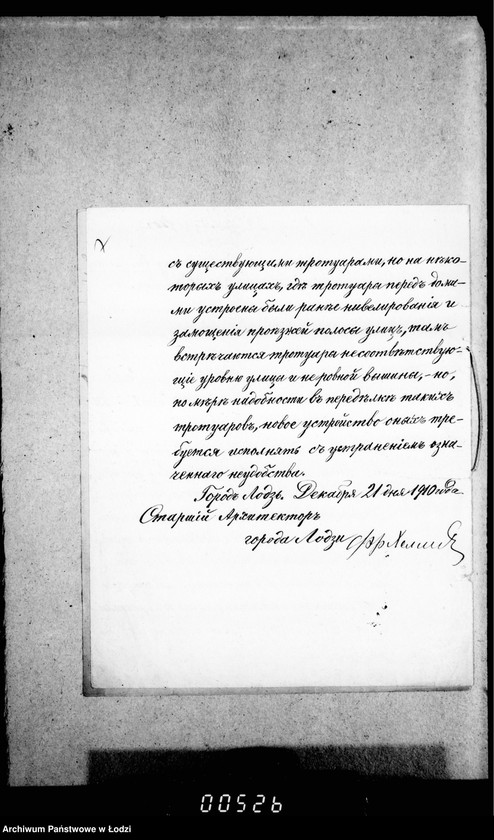 съ существующими тротуарами, но на нѣко-
торыхъ улицахъ, гдѣ тротуары передъ дома-
ми устроены были ранѣе нивелированія и
замощенія проѣзжей полосы улицъ, тамъ
встрѣчаются тротуары несоотвѣтствую-
щіе уровню улицы и неровной вышины, - но,
по мѣрѣ надобности въ передѣлкѣ такихъ
тротуаровъ, новое устройство оныхъ тре-
буется исполнять съ устраненіемъ озна-
ченнаго неудобства.
Городъ Лодзь. Декабря 21 дня 1910 года
Старшій Архитекторъ
города Лодзи
00526
Archiwum Państwowe w Łodzi